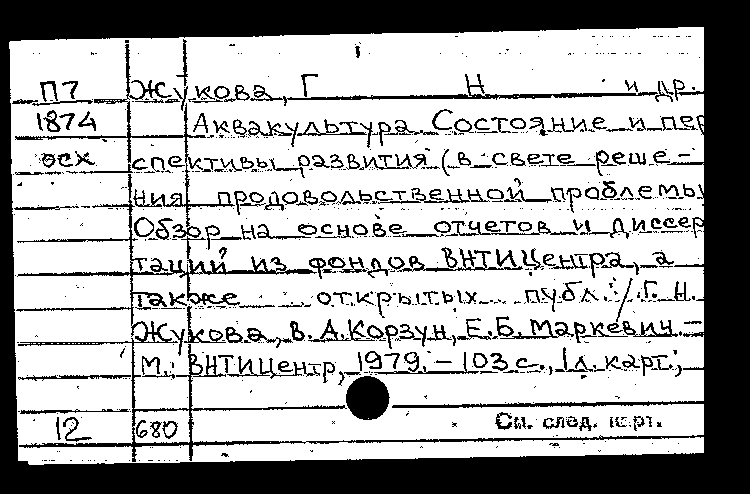 П7 Жукова, Г Н и др.
1874 Аквакультура Состояние и пер
осх спективы развития (в свете реше-
ния продовольственной проблемы
Обзор на основе отчетов и диссер
таций из фондов ВНТИЦентра, а
также открытых публ. / Г. Н.
Жукова, В. А. Корзун, Е. Б. Маркевич. –
М.: ВНТИЦентр, 1979. – 103 с., 1 л. карт.;
12 680 См. след. карт.